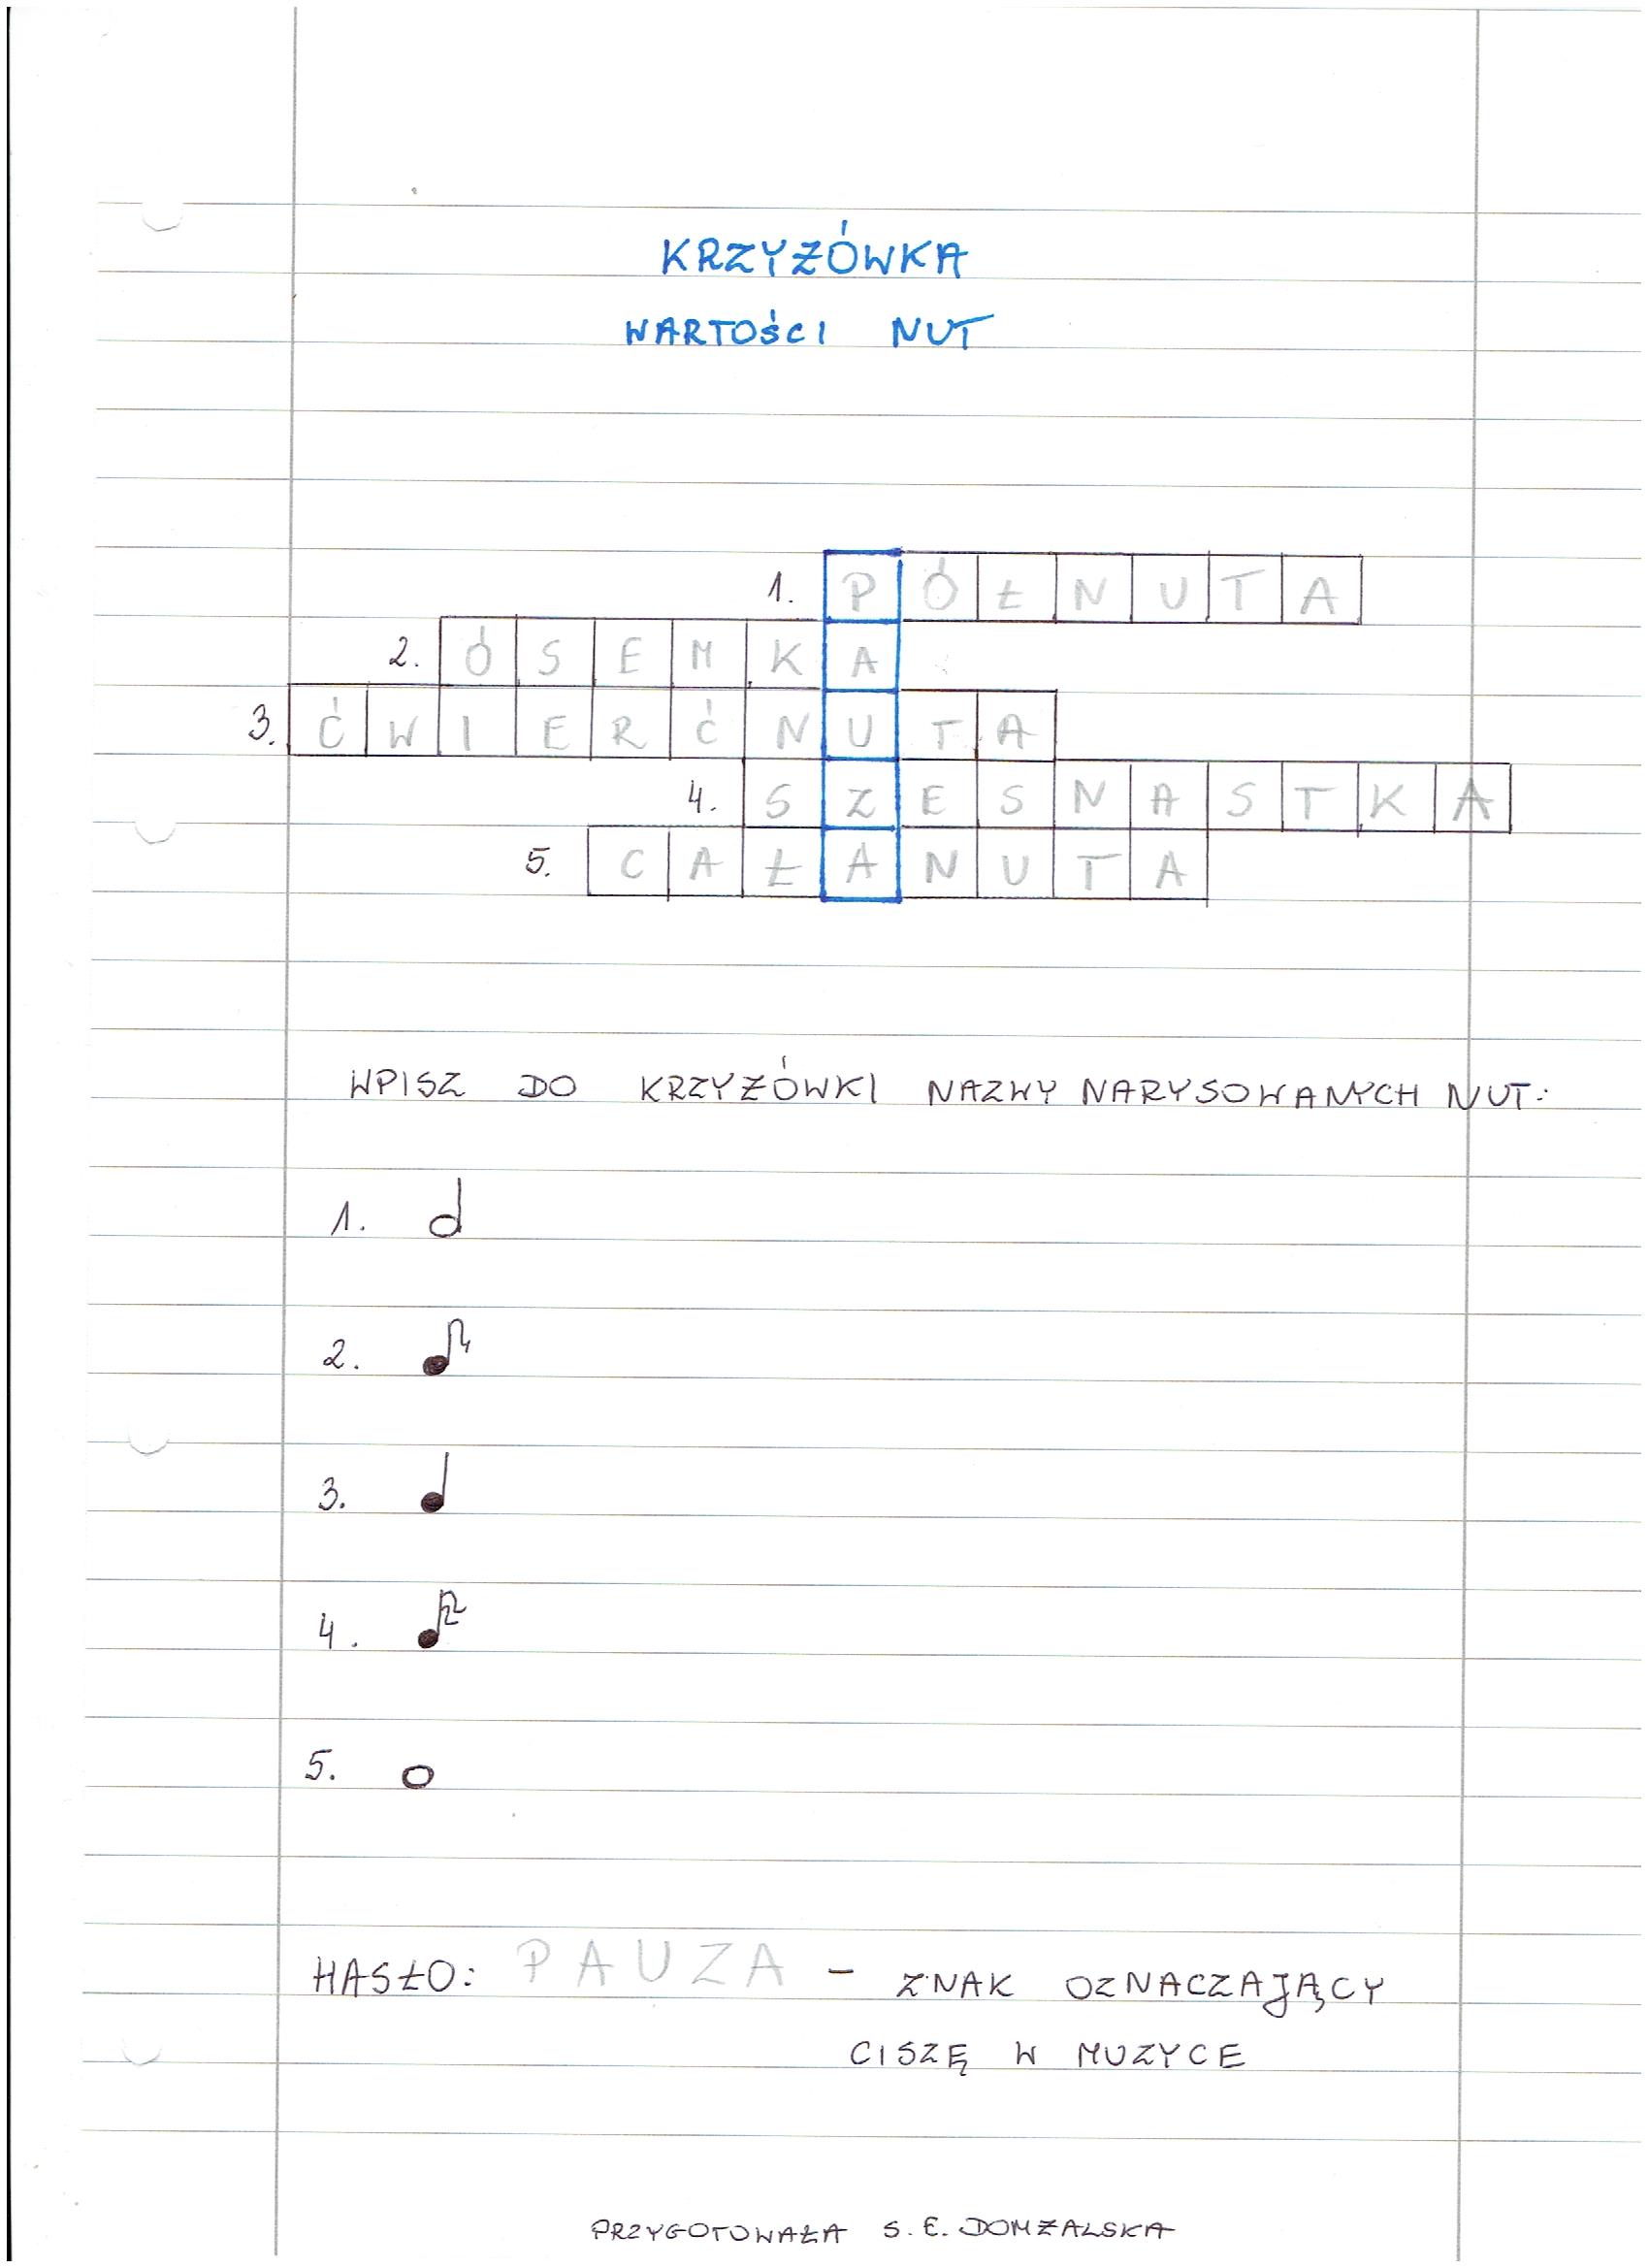 KRZYŻÓWKA
WARTOŚCI NUT
1. PÓŁNUTA
2. ÓSEMKA
3. ĆWIERĆNUTA
4. SZESNASTKA
5. CAŁANUTA
WPISZ DO KRZYŻÓWKI NAZWY NARYSOWANYCH NUT:
1.
2.
3.
4.
5.
HASŁO: PAUZA – ZNAK OZNACZAJĄCY
CISZĘ W MUZYCE
PRZYGOTOWAŁA S. E. DOMŻALSKA